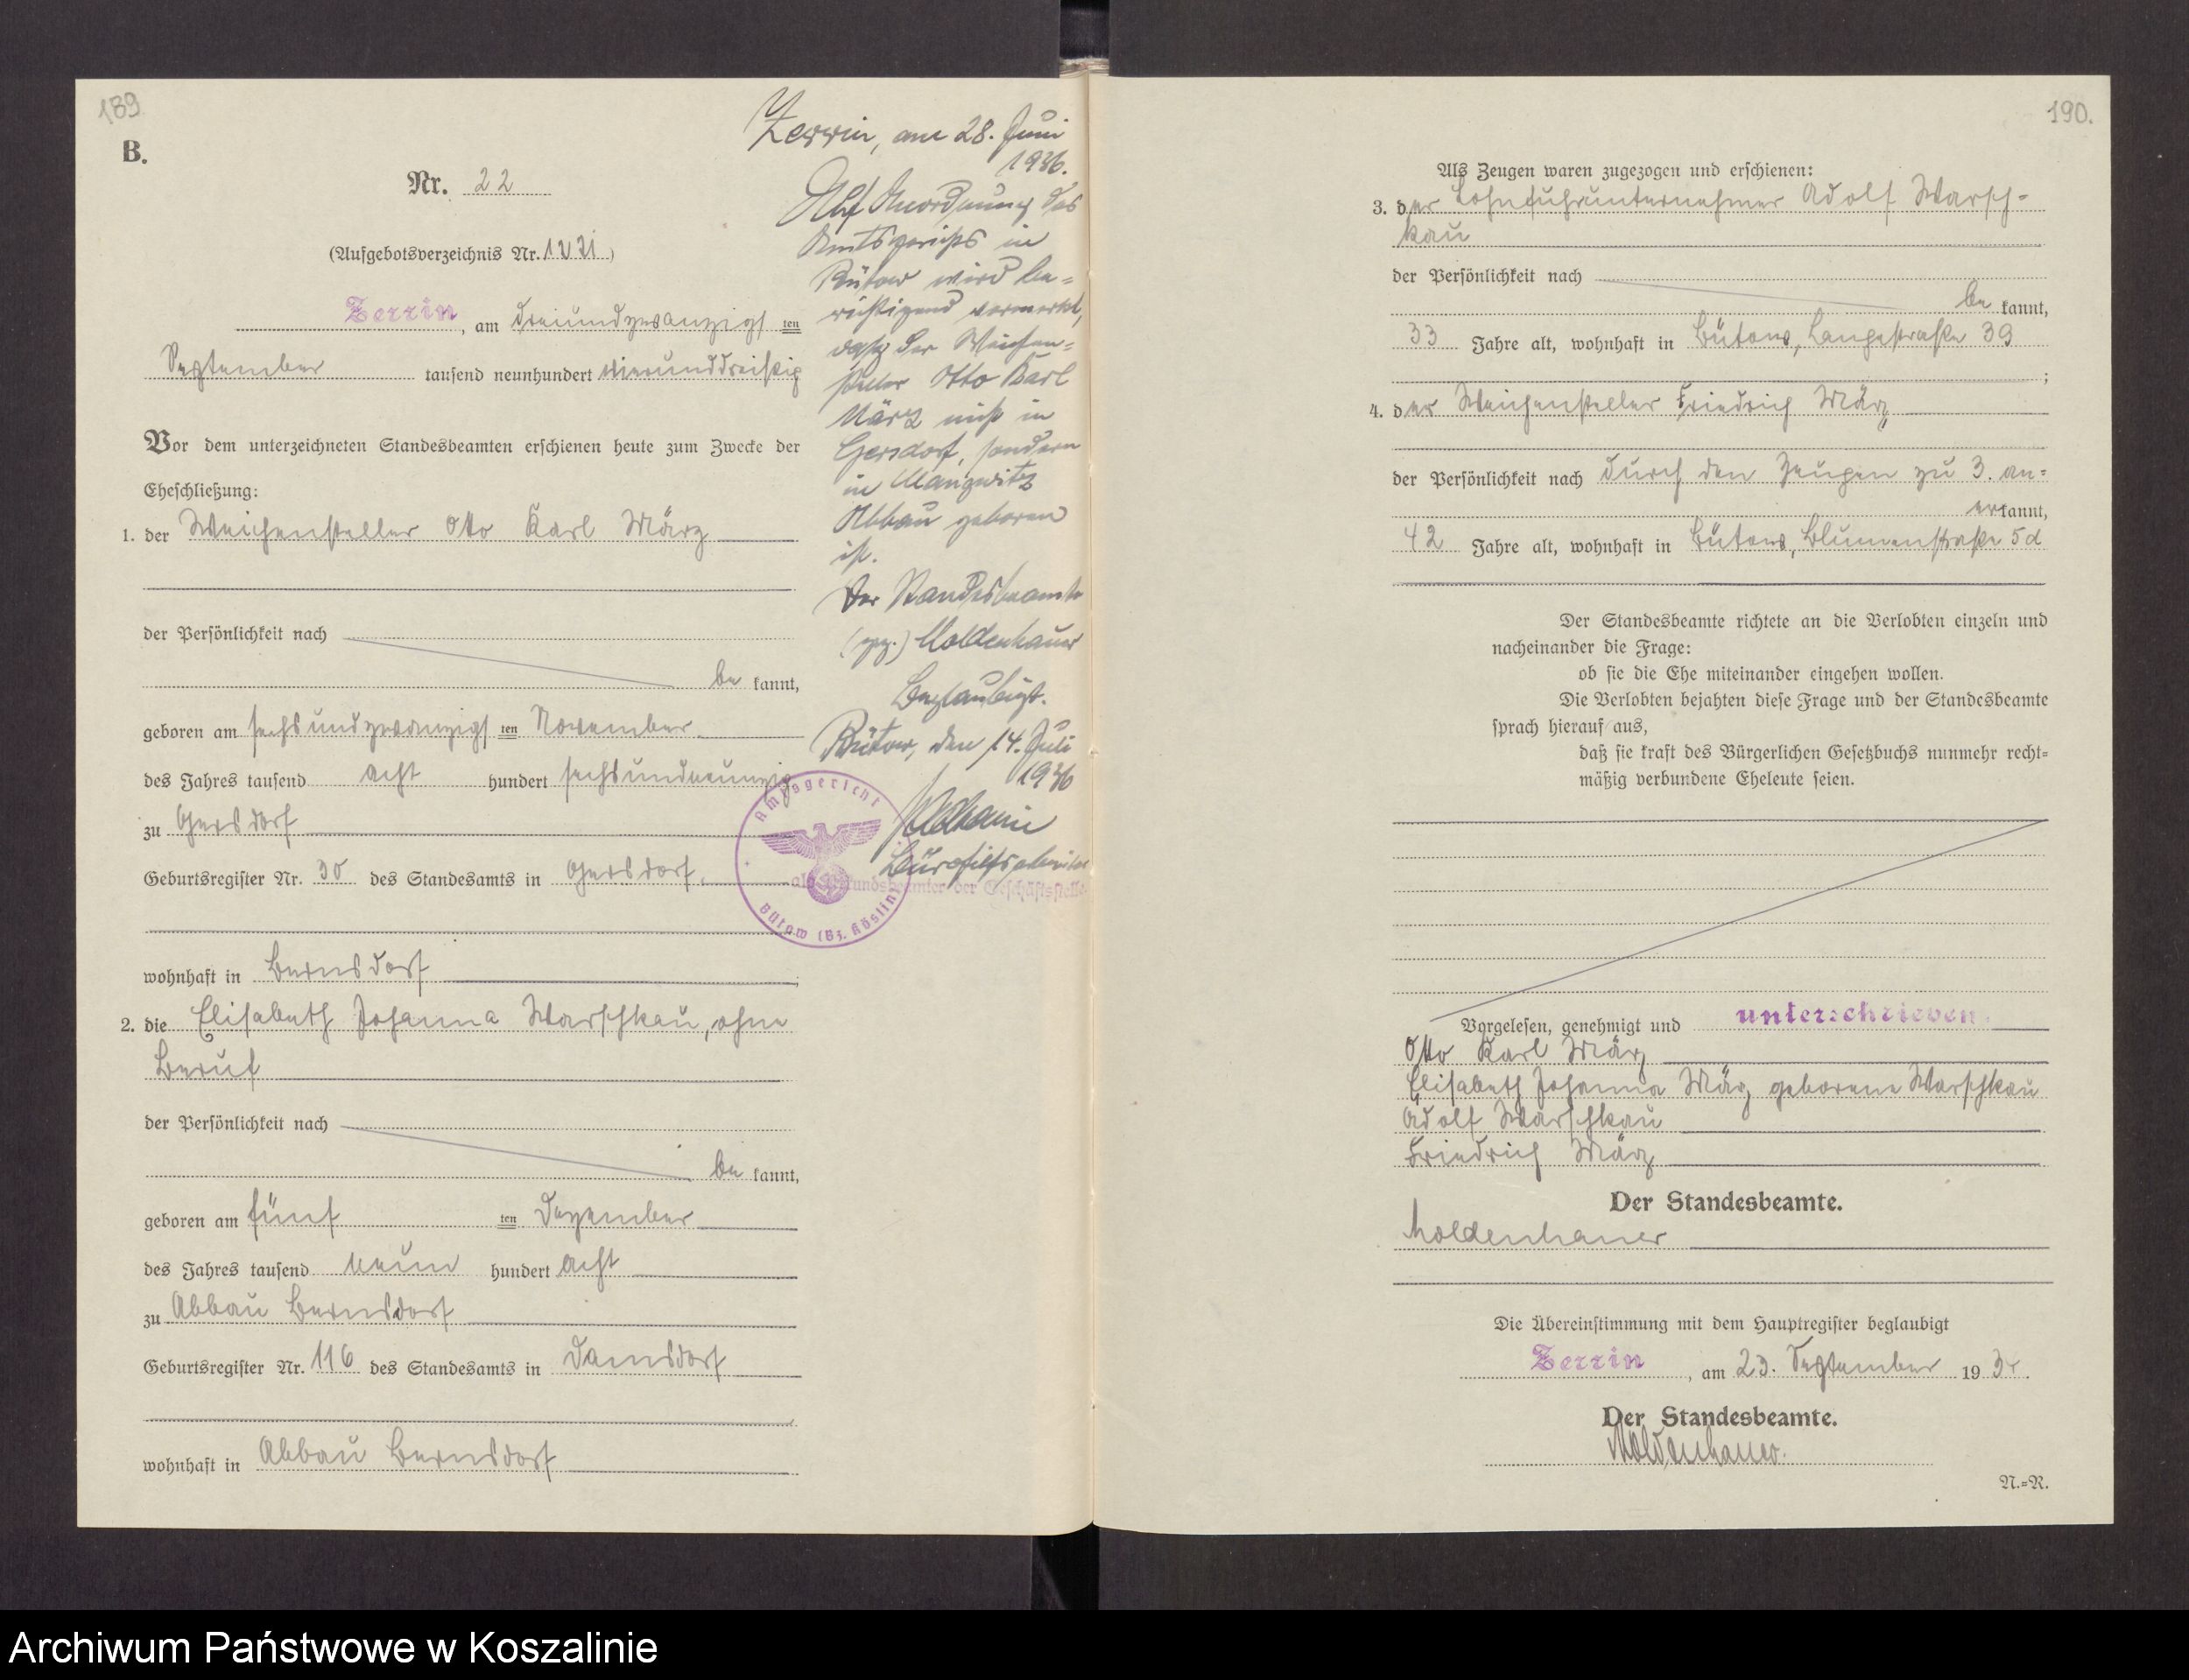 189
B.
Nr. 22
(Aufgebotsverzeichnis Nr. )
Zerrin, am dreiundzwanzigsten
September tausend neunhundert vierunddreißig
Vor dem unterzeichneten Standesbeamten erschienen heute zum Zwecke der
Eheschließung:
1. der Weichensteller Otto Karl März
der Persönlichkeit nach
be kannt,
geboren am sechsundzwanzigsten November
des Jahres tausend acht hundert sechsundneunzig
zu Gersdorf
Geburtsregister Nr. 30 des Standesamts in Gersdorf,
wohnhaft in Bernsdorf
2. die Elisabeth Johanna Warschkau, ohne
Beruf
der Persönlichkeit nach
be kannt,
geboren am fünf ten Dezember
des Jahres tausend neun hundert acht
zu Abbau Bernsdorf
Geburtsregister Nr. 116 des Standesamts in Damsdorf
wohnhaft in Abbau Bernsdorf
Zerrin, am 28. Juni
1936.
Auf Anordnung des
Amtsgerichts in
Bütow wird be=
richtigend vermerkt,
daß der Weichen=
steller Otto Karl
März nicht in
Gersdorf, sondern
in Mangwitz
Abbau geboren
ist.
Der Standesbeamte
(gez.) Moldenhauer
Beglaubigt.
Bütow, den 14. Juli
1936
Bürohilfsarbeiter
als Urkundsbeamter der Geschäftsstelle
Amtsgericht
Bütow (Bz. Köslin)
190.
Als Zeugen waren zugezogen und erschienen:
3. der Lohnfuhrunternehmer Adolf Warsch=
kau
der Persönlichkeit nach
be kannt,
33 Jahre alt, wohnhaft in Bütow, Langestraße 39
;
4. der Weichensteller Friedrich März
der Persönlichkeit nach durch den Zeugen zu 3. an=
erkannt,
42 Jahre alt, wohnhaft in Bütow, Blumenstraße 5d
Der Standesbeamte richtete an die Verlobten einzeln und
nacheinander die Frage:
ob sie die Ehe miteinander eingehen wollen.
Die Verlobten bejahten diese Frage und der Standesbeamte
sprach hierauf aus,
daß sie kraft des Bürgerlichen Gesetzbuchs nunmehr recht=
mäßig verbundene Eheleute seien.
Vorgelesen, genehmigt und unterschrieben.
Otto Karl März
Elisabeth Johanna März geborene Warschkau
Adolf Warschkau
Friedrich März
Der Standesbeamte.
Moldenhauer
Die Übereinstimmung mit dem Hauptregister beglaubigt
Zerrin, am 23. September 19
Der Standesbeamte.
Moldenhauer.
N.=R.
Archiwum Państwowe w Koszalinie